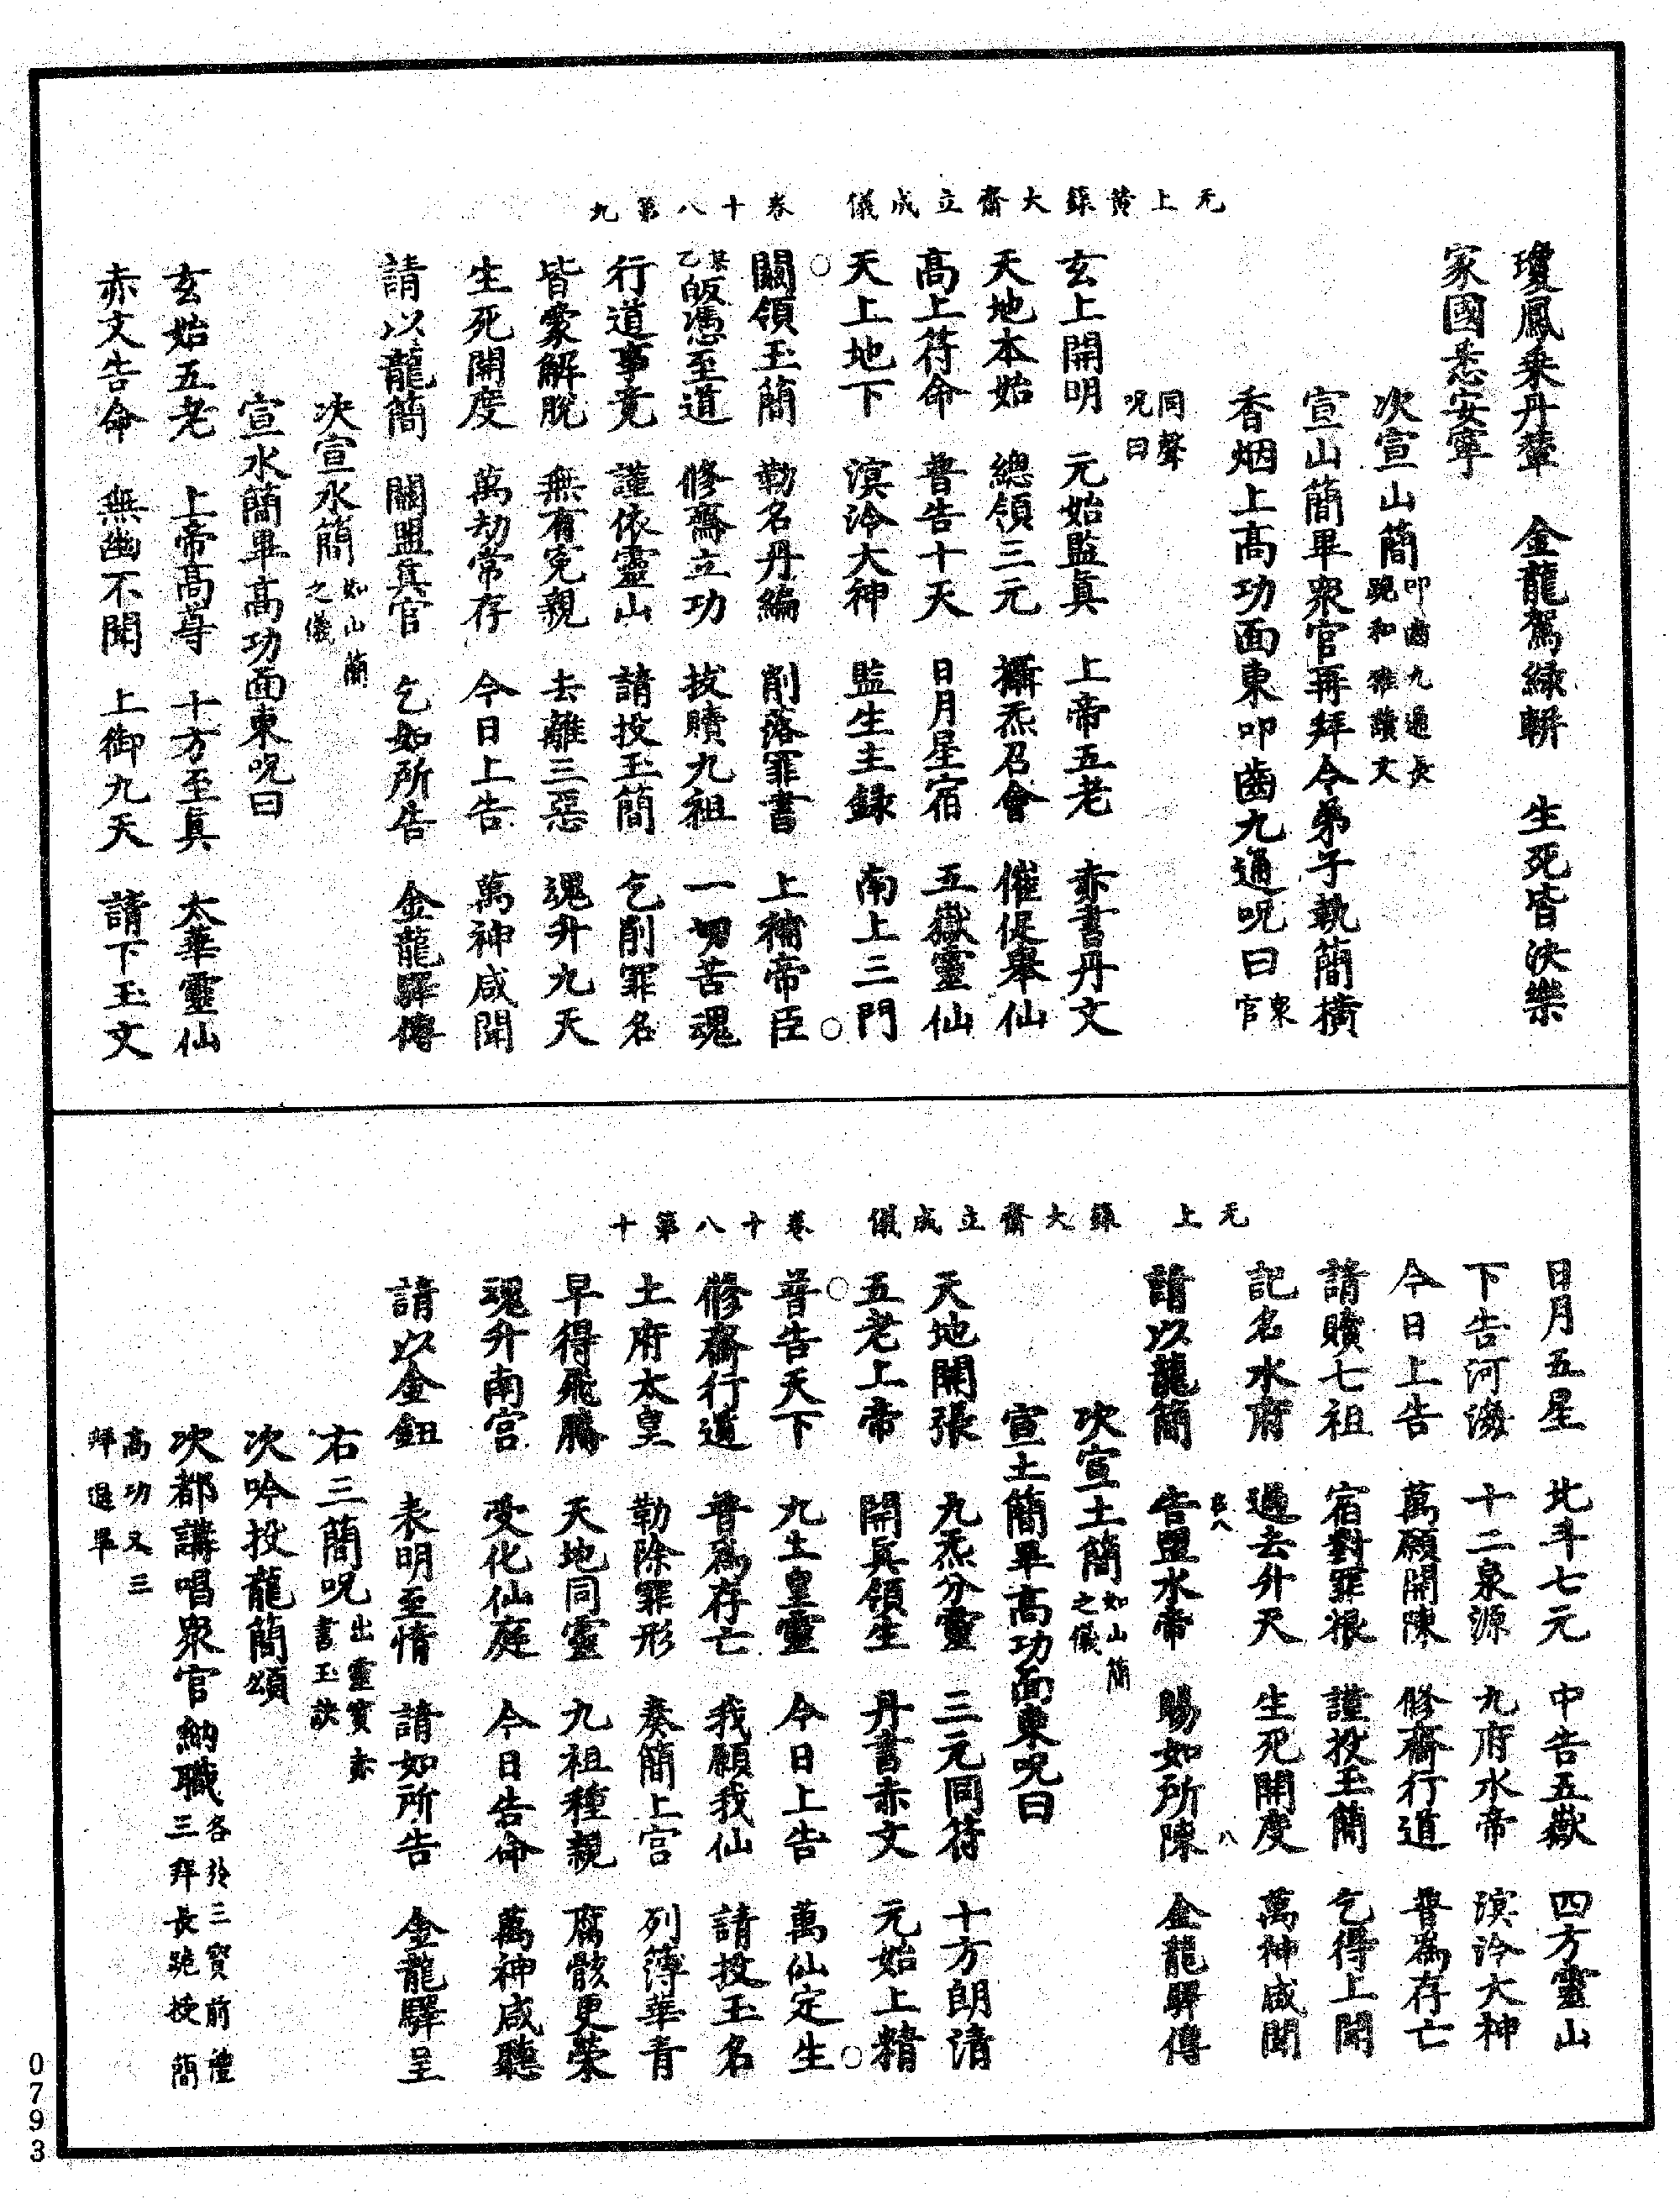 瓊鳳乘丹輦　金龍駕緑輧　生死皆決樂
家國悉安寧
次宣山簡叩齒九過長跪和雅讀文
宣山簡畢衆官再拜令弟子執簡橫
香烟上高功面東叩齒九通呪曰衆官
同聲呪曰
玄上開明　元始監真　上帝五老　赤書丹文
天地本始　總領三元　攝炁召會　催促舉仙
高上符命　普告十天　日月星宿　五嶽靈仙
天上地下　溟泠大神　監生主録　南上三門
○
無上黄籙大齋立成儀　卷十八第九
○
關領玉簡　勒名丹編　削落罪書　上補帝臣
某乙皈憑至道　修齋立功　拔贖九祖　一切苦魂
行道事竟　謹依靈山　請投玉簡　乞削罪名
皆蒙解脫　無有寃親　去離三惡　魂升九天
生死開度　萬劫常存　今日上告　萬神咸聞
請以龍簡　關盟真官　乞如所告　金龍驛傳
次宣水簡如山簡之儀
宣水簡畢高功面東呪曰
玄始五老　上帝高尊　十方至真　太華靈仙
赤文告命　無幽不聞　上御九天　請下玉文
日月五星　北斗七元　中告五嶽　四方靈山
下告河海　十二泉源　九府水帝　溟泠大神
今日上告　萬願開陳　修齋行道　普爲存亡
請贖七祖　宿對罪根　謹投玉簡　乞得上聞
記名水府　過去升天　生死開度　萬神咸聞
請以龍簡　告盟水帝　賜如所陳　金龍驛傳
次宣土簡如山簡之儀
宣土簡畢高功面東呪曰
天地開張　九炁分靈　三元同符　十方朗清
五老上帝　開真領生　丹書赤文　元始上精
○
无上　籙大齋立成儀　卷十八第十
○
普告天下　九土皇靈　今日上告　萬仙定生
修齋行道　普爲存亡　我願我仙　請投玉名
土府太皇　勒除罪形　奏簡上宫　列簿華青
早得飛騰　天地同靈　九祖種親　腐骸更榮
魂升南宫　受化仙庭　今日告命　萬神咸聽
請以金鈕　表明至情　請如所告　金龍驛呈
右三簡呪出靈寳赤書玉訣
次吟投龍簡頌
次都講唱衆官納職各於三寳前禮三拜長跪授簡
高功又三拜退畢
0793